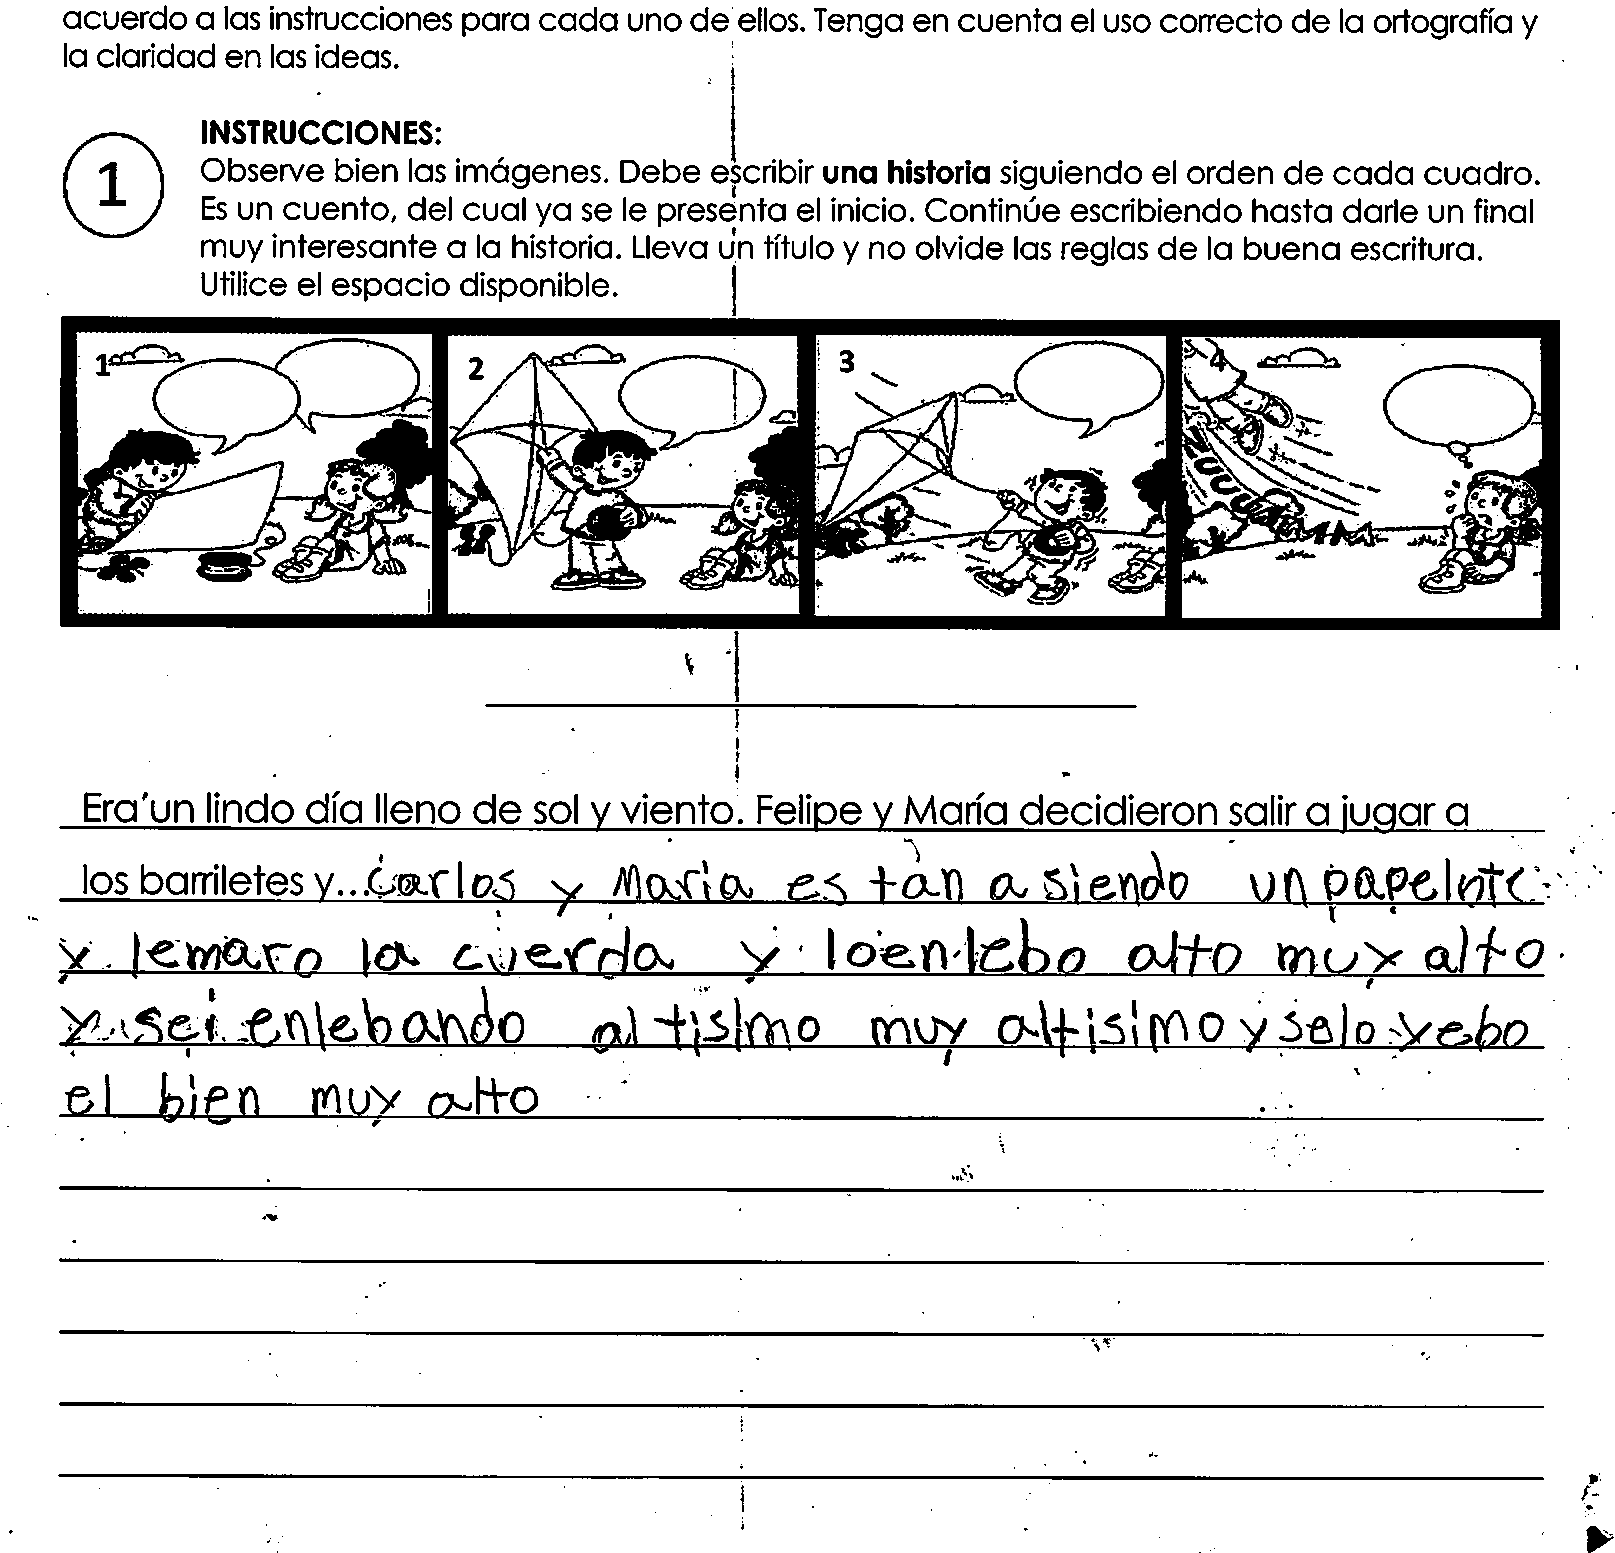 acuerdo a las instrucciones para cada uno de ellos. Tenga en cuenta el uso correcto de la ortografía y
la claridad en las ideas.
1
INSTRUCCIONES:
Observe bien las imágenes. Debe escribir una historia siguiendo el orden de cada cuadro.
Es un cuento, del cual ya se le presenta el inicio. Continúe escribiendo hasta darle un final
muy interesante a la historia. Lleva un título y no olvide las reglas de la buena escritura.
Utilice el espacio disponible.
1 2 3 4
Era un lindo día lleno de sol y viento. Felipe y María decidieron salir a jugar a
los barriletes y... Carlos y Maria es tan a siendo un papelote
y lemaro la cuerda y lo enlebo alto muy alto.
y sei enlebando altisimo muy altisimo y selo yebo
el bien muy alto